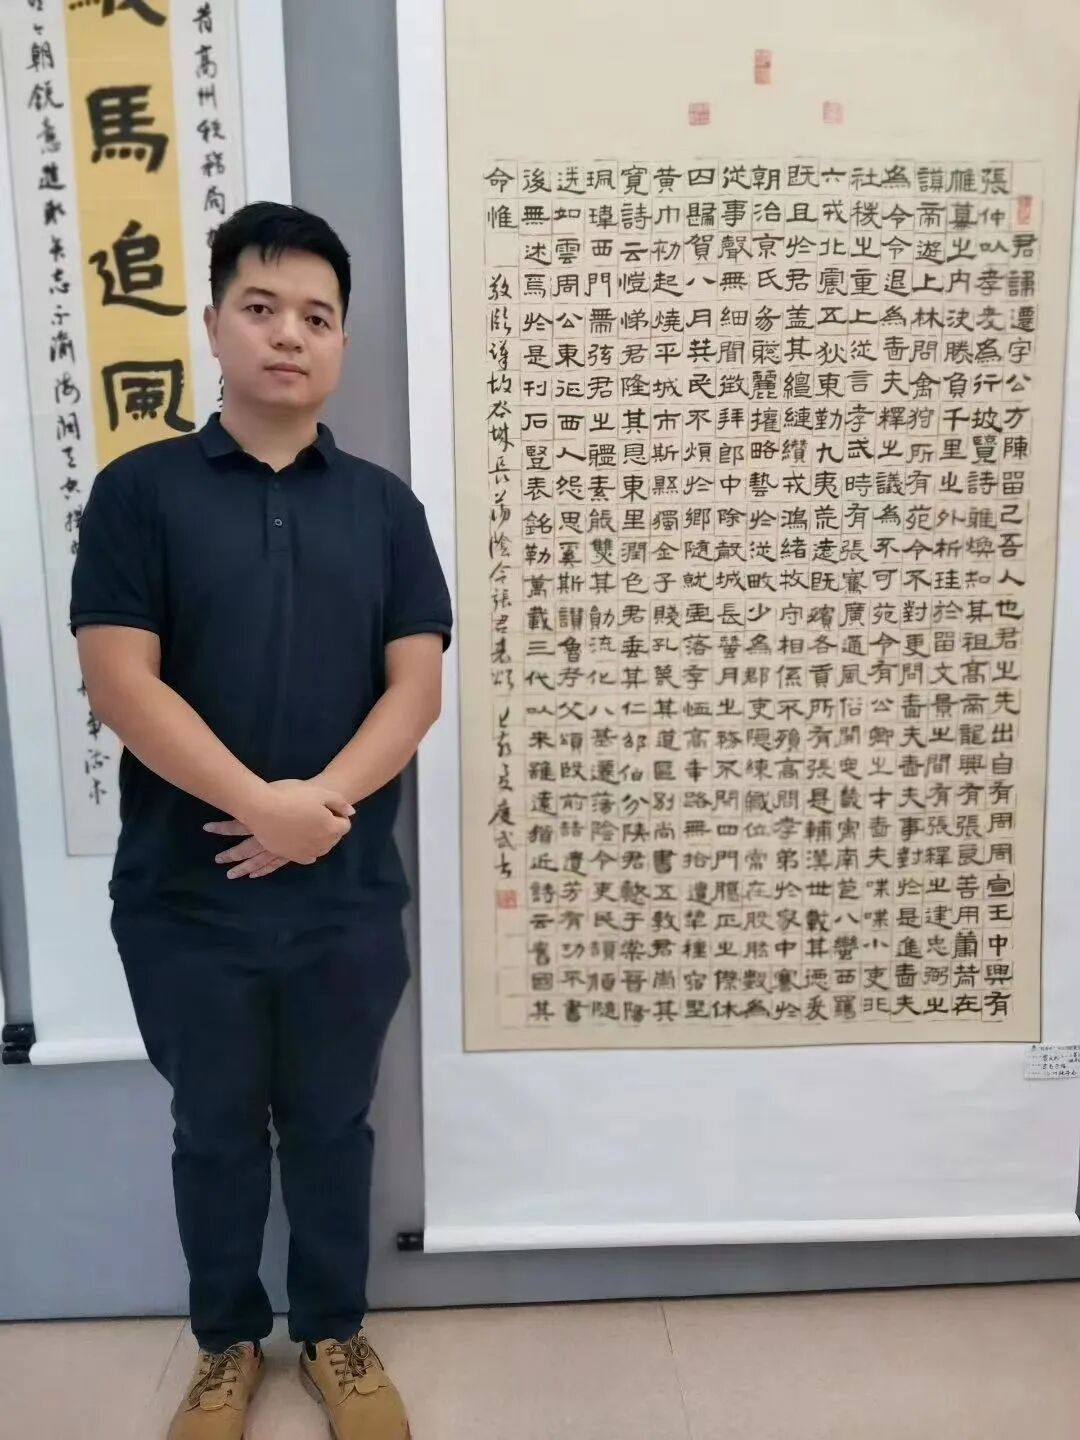 君諱遷字公方陳留己吾人也君之先出自有周周宣王中興有
張仲以孝友為行披覽詩雅煥知其祖高帝龍興有張良善用籌策在
帷幕之內決勝負千里之外析珪於留文景之間有張釋之建忠弼之
謨帝遊上林問禽狩所有苑令不對更問嗇夫嗇夫事對於是進嗇夫
為令令退為嗇夫釋之議為不可苑令有公卿之才嗇夫喋喋小吏非
社稷之重上從言孝武時有張騫廣通風俗開定畿寓南苞八蠻西羈
六戎北震五狄東勤九夷荒遠既殯各貢所有張是輔漢世載其德爰
既且於君蓋其繵縺纘戎鴻緒牧守相係不殞高問孝弟於家中謇於
朝治京氏易聰麗權略藝於從畋少為郡吏隱練職位常在股肱數為
從事聲無細聞徵拜郎中除穀城長蠶月之務不閉四門臘正之傺休
囚歸賀八月筭民不煩於鄉隨就虛落存恤高年路無拾遺犁種宿野
黃巾初起燒平城市斯縣獨全子賤孔蔑其道區別尚書五教君崇其
寬詩云愷悌君隆其恩東里潤色君垂其仁邵伯分陝君懿于棠晉陽
珮瑋西門帶弦君之體素能雙其勛流化八基遷蕩陰令吏民頡頏隨
送如雲周公東征西人怨思奚斯讚魯考父頌殷前喆遺芳有功不書
後無述焉於是刊石豎表銘勒萬載三代以來雖遠猶近詩云舊國其
命惟
敬臨漢故谷城長蕩陰令張君表頌
昔高州稅務局
馬追風
朝銳意進取矢志不